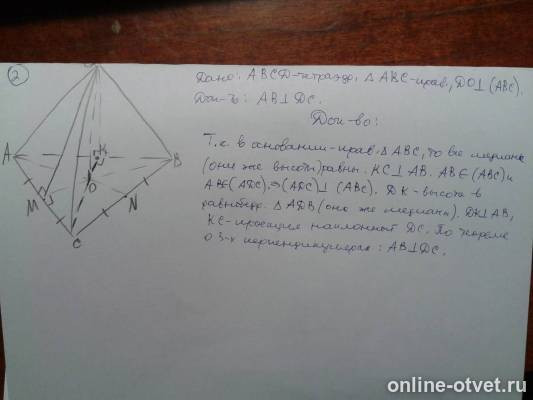 2
Дано: ABCD-тетраэдр, Δ ABC-прав., DO⊥(ABC).
Док-ть: AB⊥DC.
Док-во:
Т.к. в основании-прав. Δ ABC, то все медианы
(они же высоты) равны. KC⊥AB. AB∈(ABC) и
AB∈(ADC) ⇒ (ADC)⊥(ABC). DK-высота в
равнобедр. Δ ADB (она же медиана). DK⊥AB,
KC-проекция наклонной DC. По теореме
о 3-х перпендикулярах: AB⊥DC.
A
K
B
O
M
N
C
online-otvet.ru